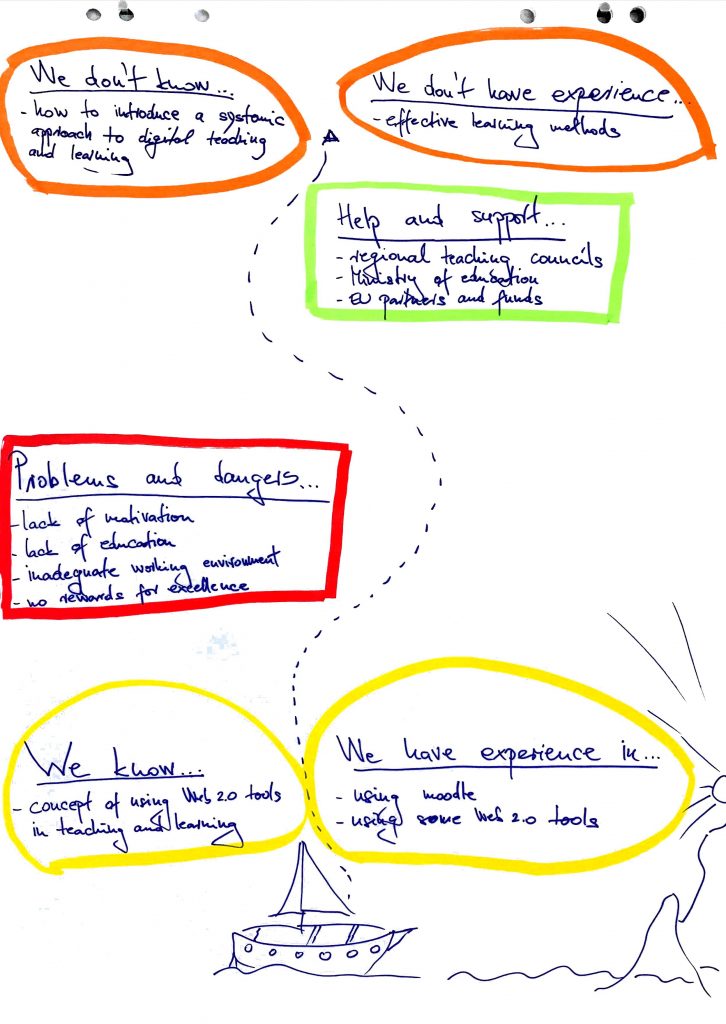 We don't know...
- how to introduce a systemic
approach to digital teaching
and learning
We don't have experience...
- effective learning methods
Help and support...
- regional teaching councils
- Ministry of education
- EU partners and funds
Problems and dangers...
- lack of motivation
- lack of education
- inadequate working environment
- no rewards for excellence
We know...
- concept of using Web 2.0 tools
in teaching and learning
We have experience in...
- using moodle
- using some Web 2.0 tools